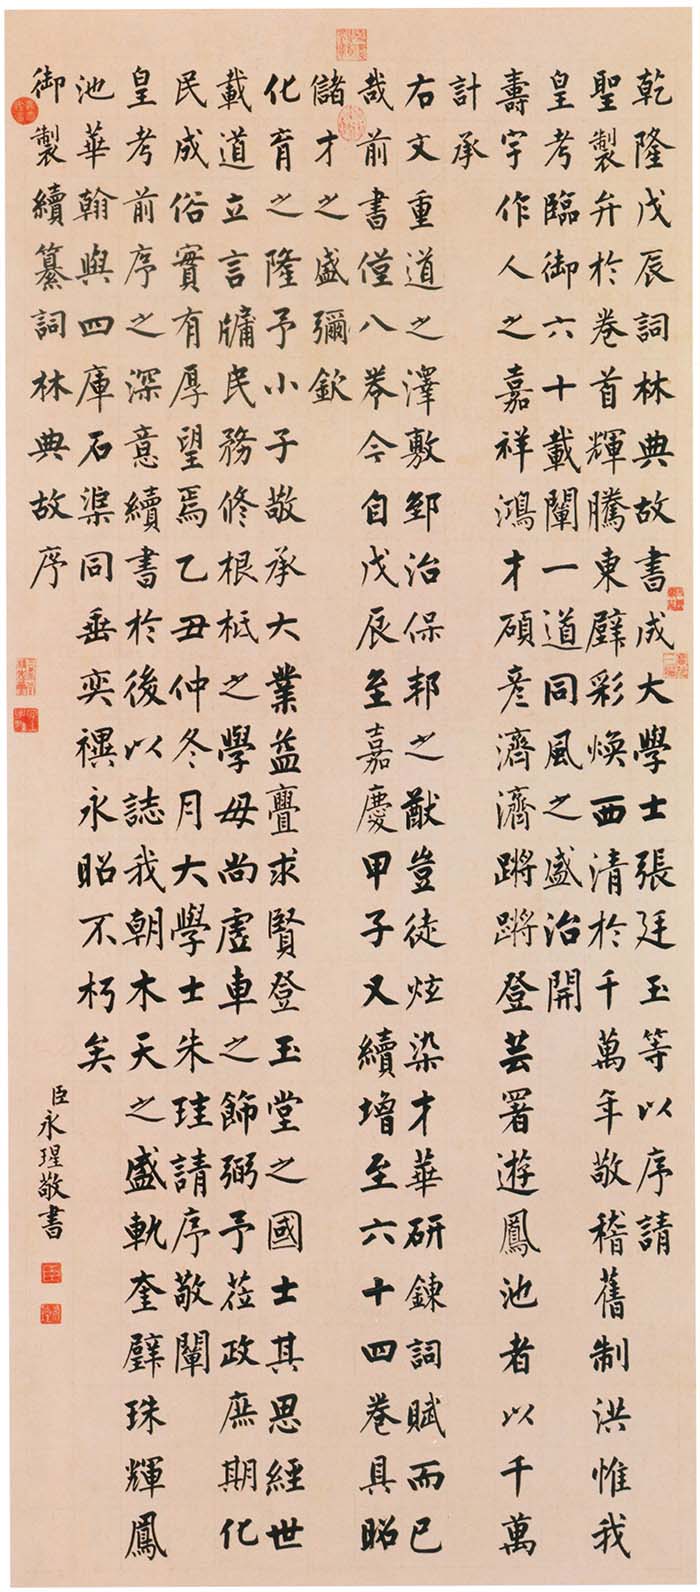 乾隆戊辰詞林典故書成大學士張廷玉等以序請
聖製弁於卷首輝騰東壁彩煥西清於千萬年敬稽舊制洪惟我
皇考臨御六十載闡一道同風之盛治開
壽宇作人之嘉祥鴻才碩彥濟濟蹌蹌登芸署遊鳳池者以千萬
計承
右文重道之澤敷郅治保邦之猷豈徒炫染才華研鍊詞賦而已
哉前書僅八券今自戊辰至嘉慶甲子又續增至六十四卷具昭
儲才之盛彌欽
化育之隆予小子敬承大業益亹求賢登玉堂之國士其思經世
載道立言牖民務修根柢之學毋尚虛車之飾弼予莅政庶期化
民成俗實有厚望焉乙丑仲冬月大學士朱珪請序敬闡
皇考前序之深意續書於後以誌我朝木天之盛軌奎璧珠輝鳳
池華翰與四庫石渠同垂奕禩永昭不朽矣
御製續纂詞林典故序
臣永瑆敬書